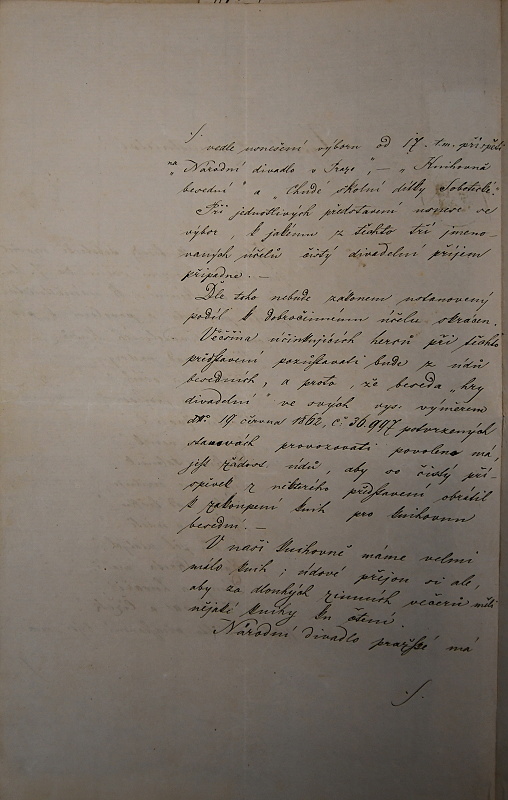 ./.
vedle usnešení výboru od 17. t. m. připjětí
na
"Národní divadlo v Praze", — "Knihovna
besední" a "Chudé školní dítky Sobotecké."
Při jednotlivých představení usnese se
výbor, k jakému z těchto tří jmeno-
vaných účelů čistý divadelní příjem
připadne. —
Dle toho nebude zákonem ustanovený
podíl k dobročinnému účelu skrácen.
Většina účinkujících herců při těchto
představení pozůstavati bude z údů
besedních, a proto, že beseda "hry
divadelní" ve svých vys. výměrem
dto 19. června 1862, č. 36.997 potvrzených
stanovách provozovati povoleno má,
jest žádost údů, aby se čistý pří-
spěvek z některého představení obrátil
k zakoupení knih pro knihovnu
besední. —
V naší knihovně máme velmi
málo knih; údové přejou si ale,
aby za dlouhých zimních večerů měli
nějaké knihy ku čtení.
Národní divadlo pražské má
./.